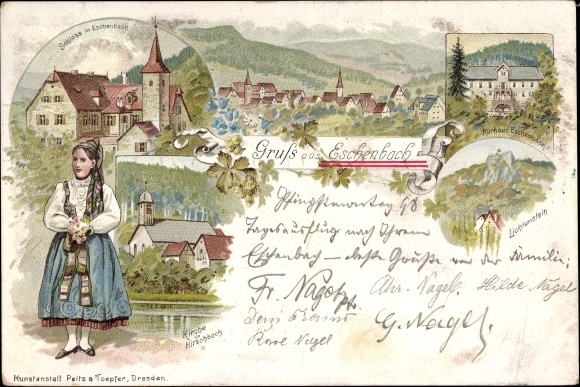 Schloss in Eschenbach
Kurhaus Eschenbach
Gruß aus Eschenbach
Lichtenstein
Kirche
Hirschbach
Pfingstsonntag 98
Tagesausflug nach Ihrem
Eschenbach – beste Grüße von der Familie:
Fr. Nagel
Nagel. Hilde Nagel
G. Nagel.
Nagel
Kunstanstalt Peitz & Toepfer, Dresden.